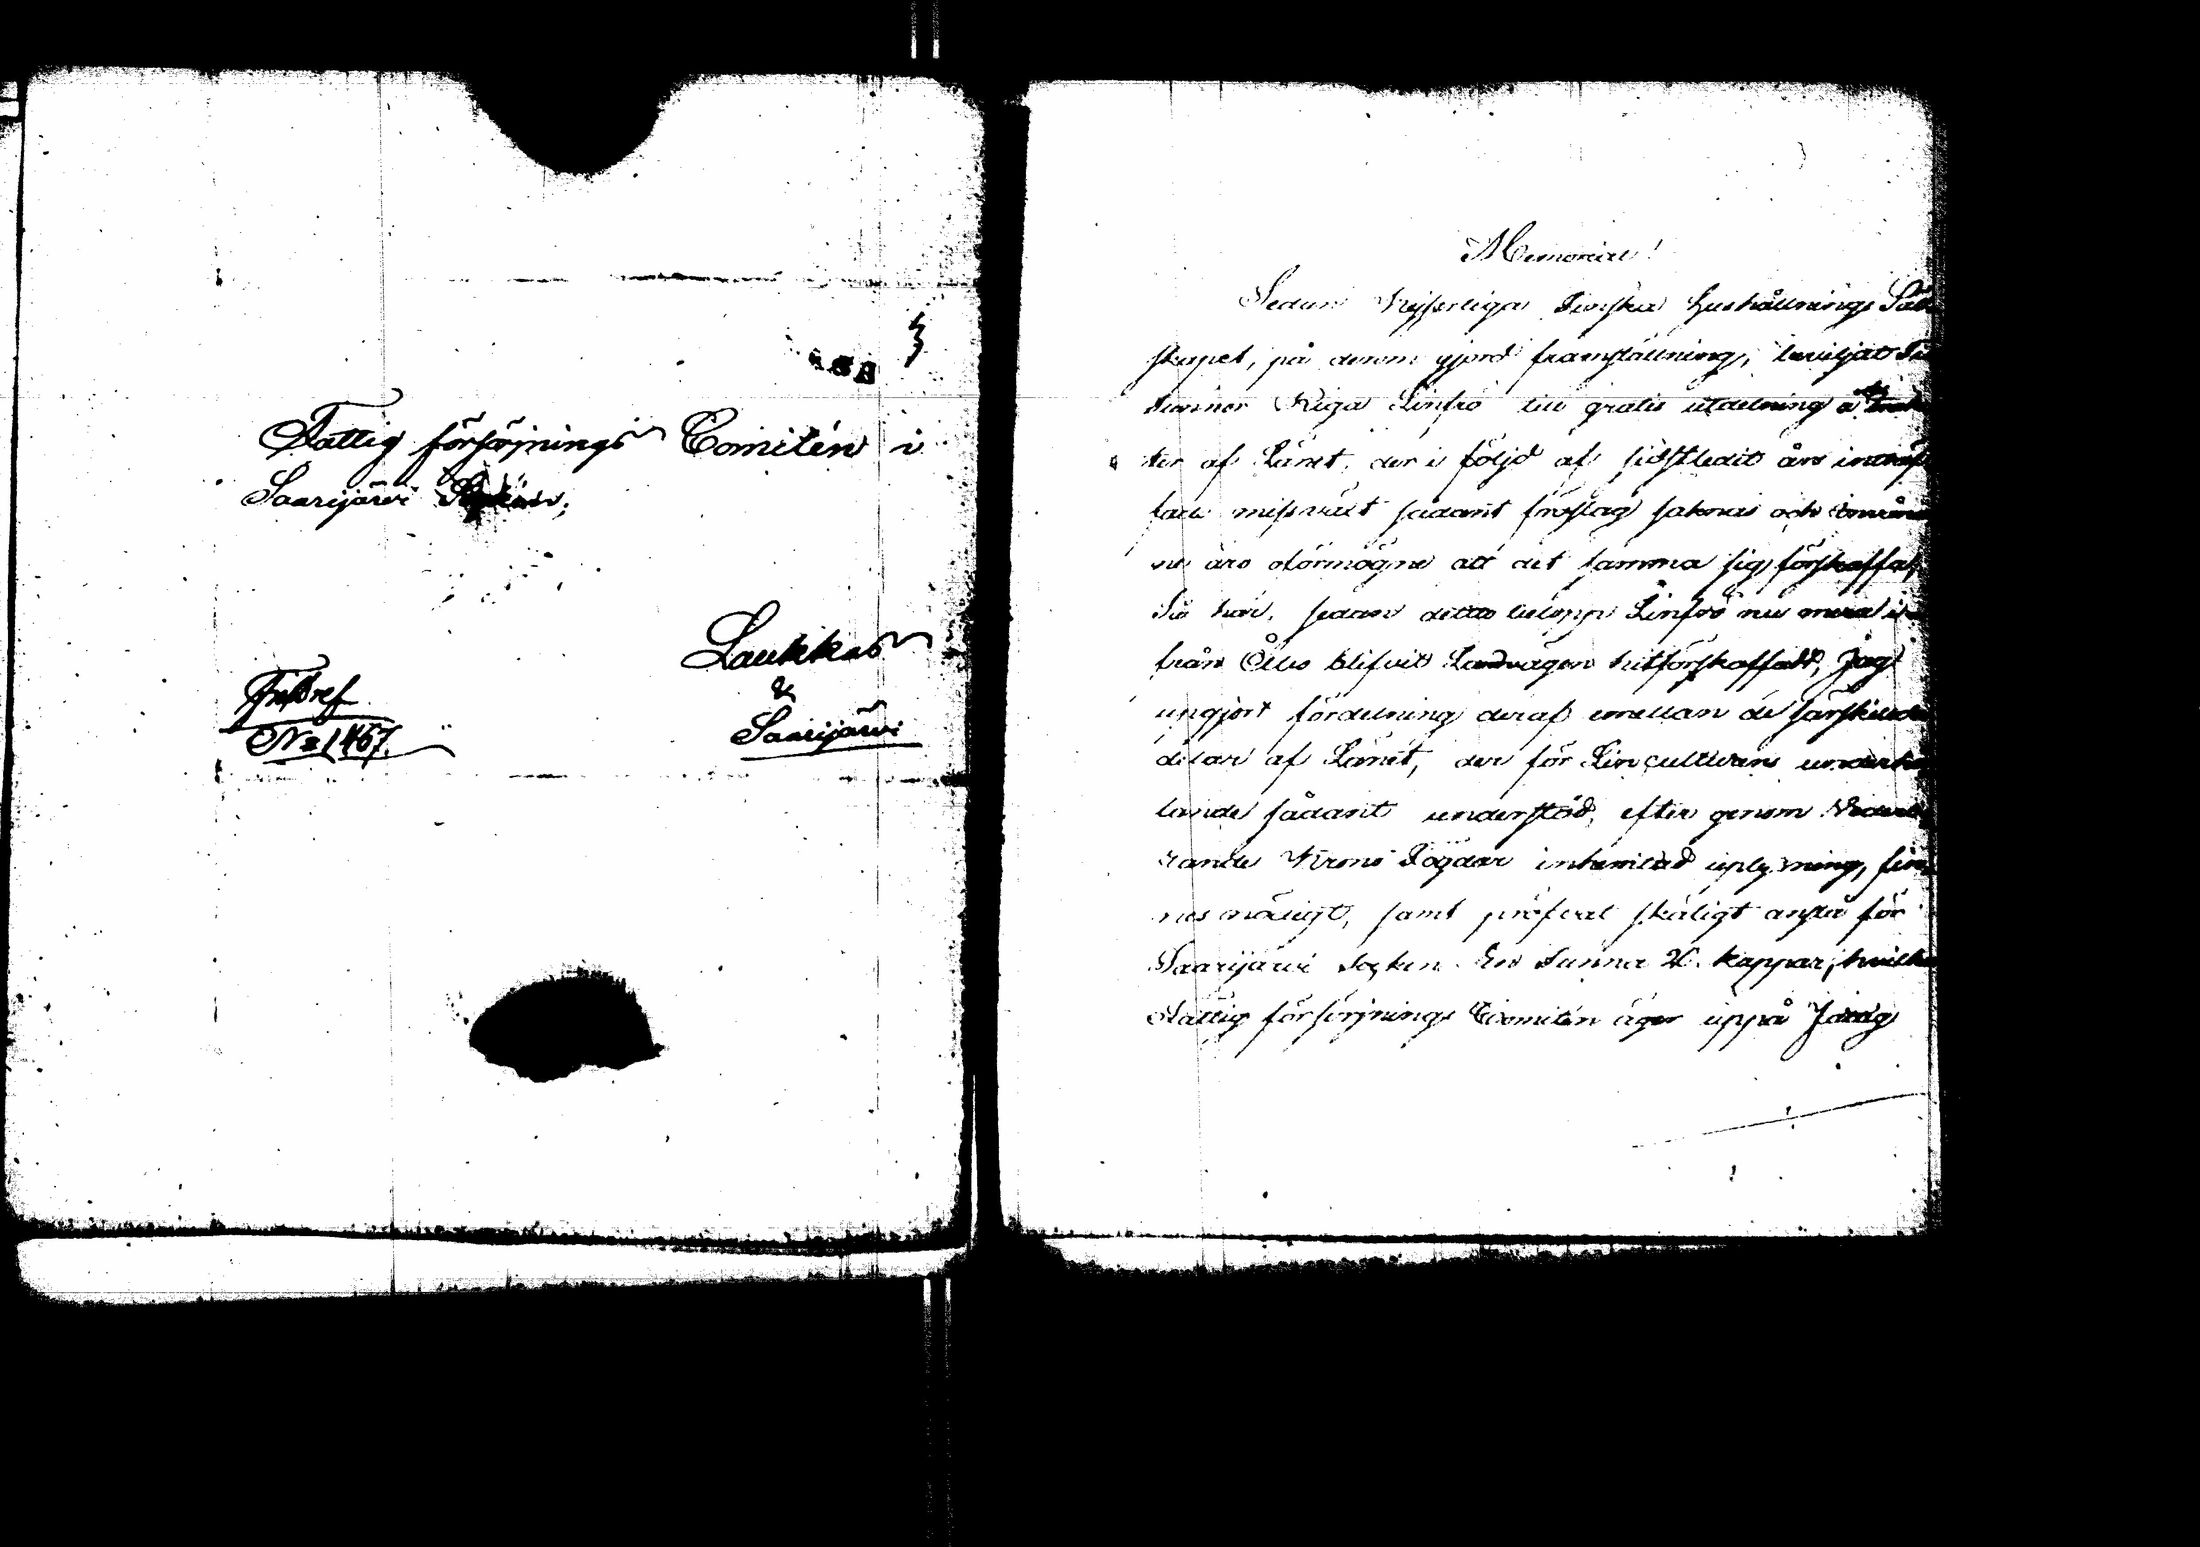 Fattig försörjnings Comitén i
Saarijärvi Socken,
Laukkas
&
Saarijärvi
Fribref
No 1467.
Memorial!
Sedan Kejserliga Finska Hushållnings Säll
skapet, på derom gjord framställning, beviljat
tunnor Riga Linfrö till gratis utdelning å
ter af Länet, der i följd af sidstledit års inträf
fade missväxt sådant fröslag saknas och invåna
ne äro oförmögne att det samma sig förskaffa,
Så har, sedan detta belopp Linfrö nu mera
från Åbo blifvit Landvägen hitförskaffadt, Jag
uppgjort fördelning deraf emellan de särskildte
delar af Länet, der för Lin culturens underhål
lande sådant understöd, efter genom Vederbö
rande Krono Fogdar inhemtad uplysning, fin
nes nödigt, samt pröfvat skäligt anslå för
Saarijärvi Socken En Tunna 26 kappar, hvilka
Fattig försörjnings Comitén äger uppå